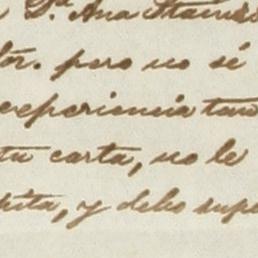 Dª. Ana Maria
tór. pero no sé
experiencia tan
tu carta, no le
pita, y debo supo